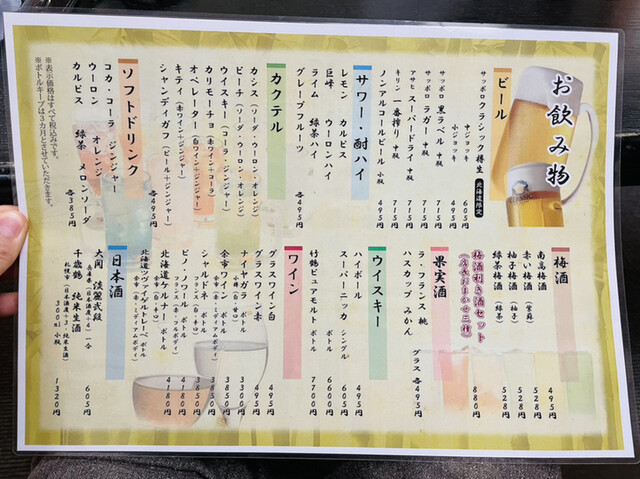 お飲み物
ビール
サッポロクラシック樽生 北海道限定
中ジョッキ 605円
小ジョッキ 495円
サッポロ 黒ラベル 中瓶 715円
サッポロ ラガー 中瓶 715円
アサヒ スーパードライ 中瓶 715円
キリン 一番搾り 中瓶 715円
ノンアルコールビール 小瓶 495円
サワー・酎ハイ
レモン カルピス
巨峰 ウーロンハイ
ライム 緑茶ハイ
グレープフルーツ 各495円
カクテル
カシス(ソーダ・ウーロン・オレンジ)
ピーチ(ソーダ・ウーロン・オレンジ)
ウイスキー(コーラ・ジンジャー)
カリモーチョ(赤ワイン+コーラ)
オペレーター(白ワイン+ジンジャー)
キティ(赤ワイン+ジンジャー)
シャンディガフ(ビール+ジンジャー) 各495円
ソフトドリンク
コカ・コーラ・ジンジャー
ウーロン オレンジ
カルピス 緑茶 メロンソーダ 各385円
※表示価格はすべて税込みです。
※ボトルキープは3カ月とさせていただきます。
梅酒
南高梅酒 495円
赤い梅酒(紫蘇) 528円
柚子梅酒(柚子) 528円
緑茶梅酒(緑茶) 528円
梅酒利き酒セット
(店主おまかせ三種) 880円
果実酒
ラ・フランス 桃
ハスカップ みかん グラス 各495円
ウイスキー
ハイボール 495円
スーパーニッカ シングル 605円
ボトル 6600円
竹鶴ピュアモルト ボトル 7700円
ワイン
グラスワイン白 495円
グラスワイン赤 495円
ナイヤガラ ボトル 3300円
余市ワイン ボトル 3850円
シャルドネ ボトル 3850円
ピノ・ノワール ボトル 4180円
フランス(赤・フルボディ)
北海道ケルナー ボトル 4180円
北海道ツヴァイゲルトレーベ ボトル
余市(赤・ミディアムボディ)
日本酒
大関 淡麗弐段
一合 605円
千歳鶴 純米生酒
300ml 小瓶 1320円